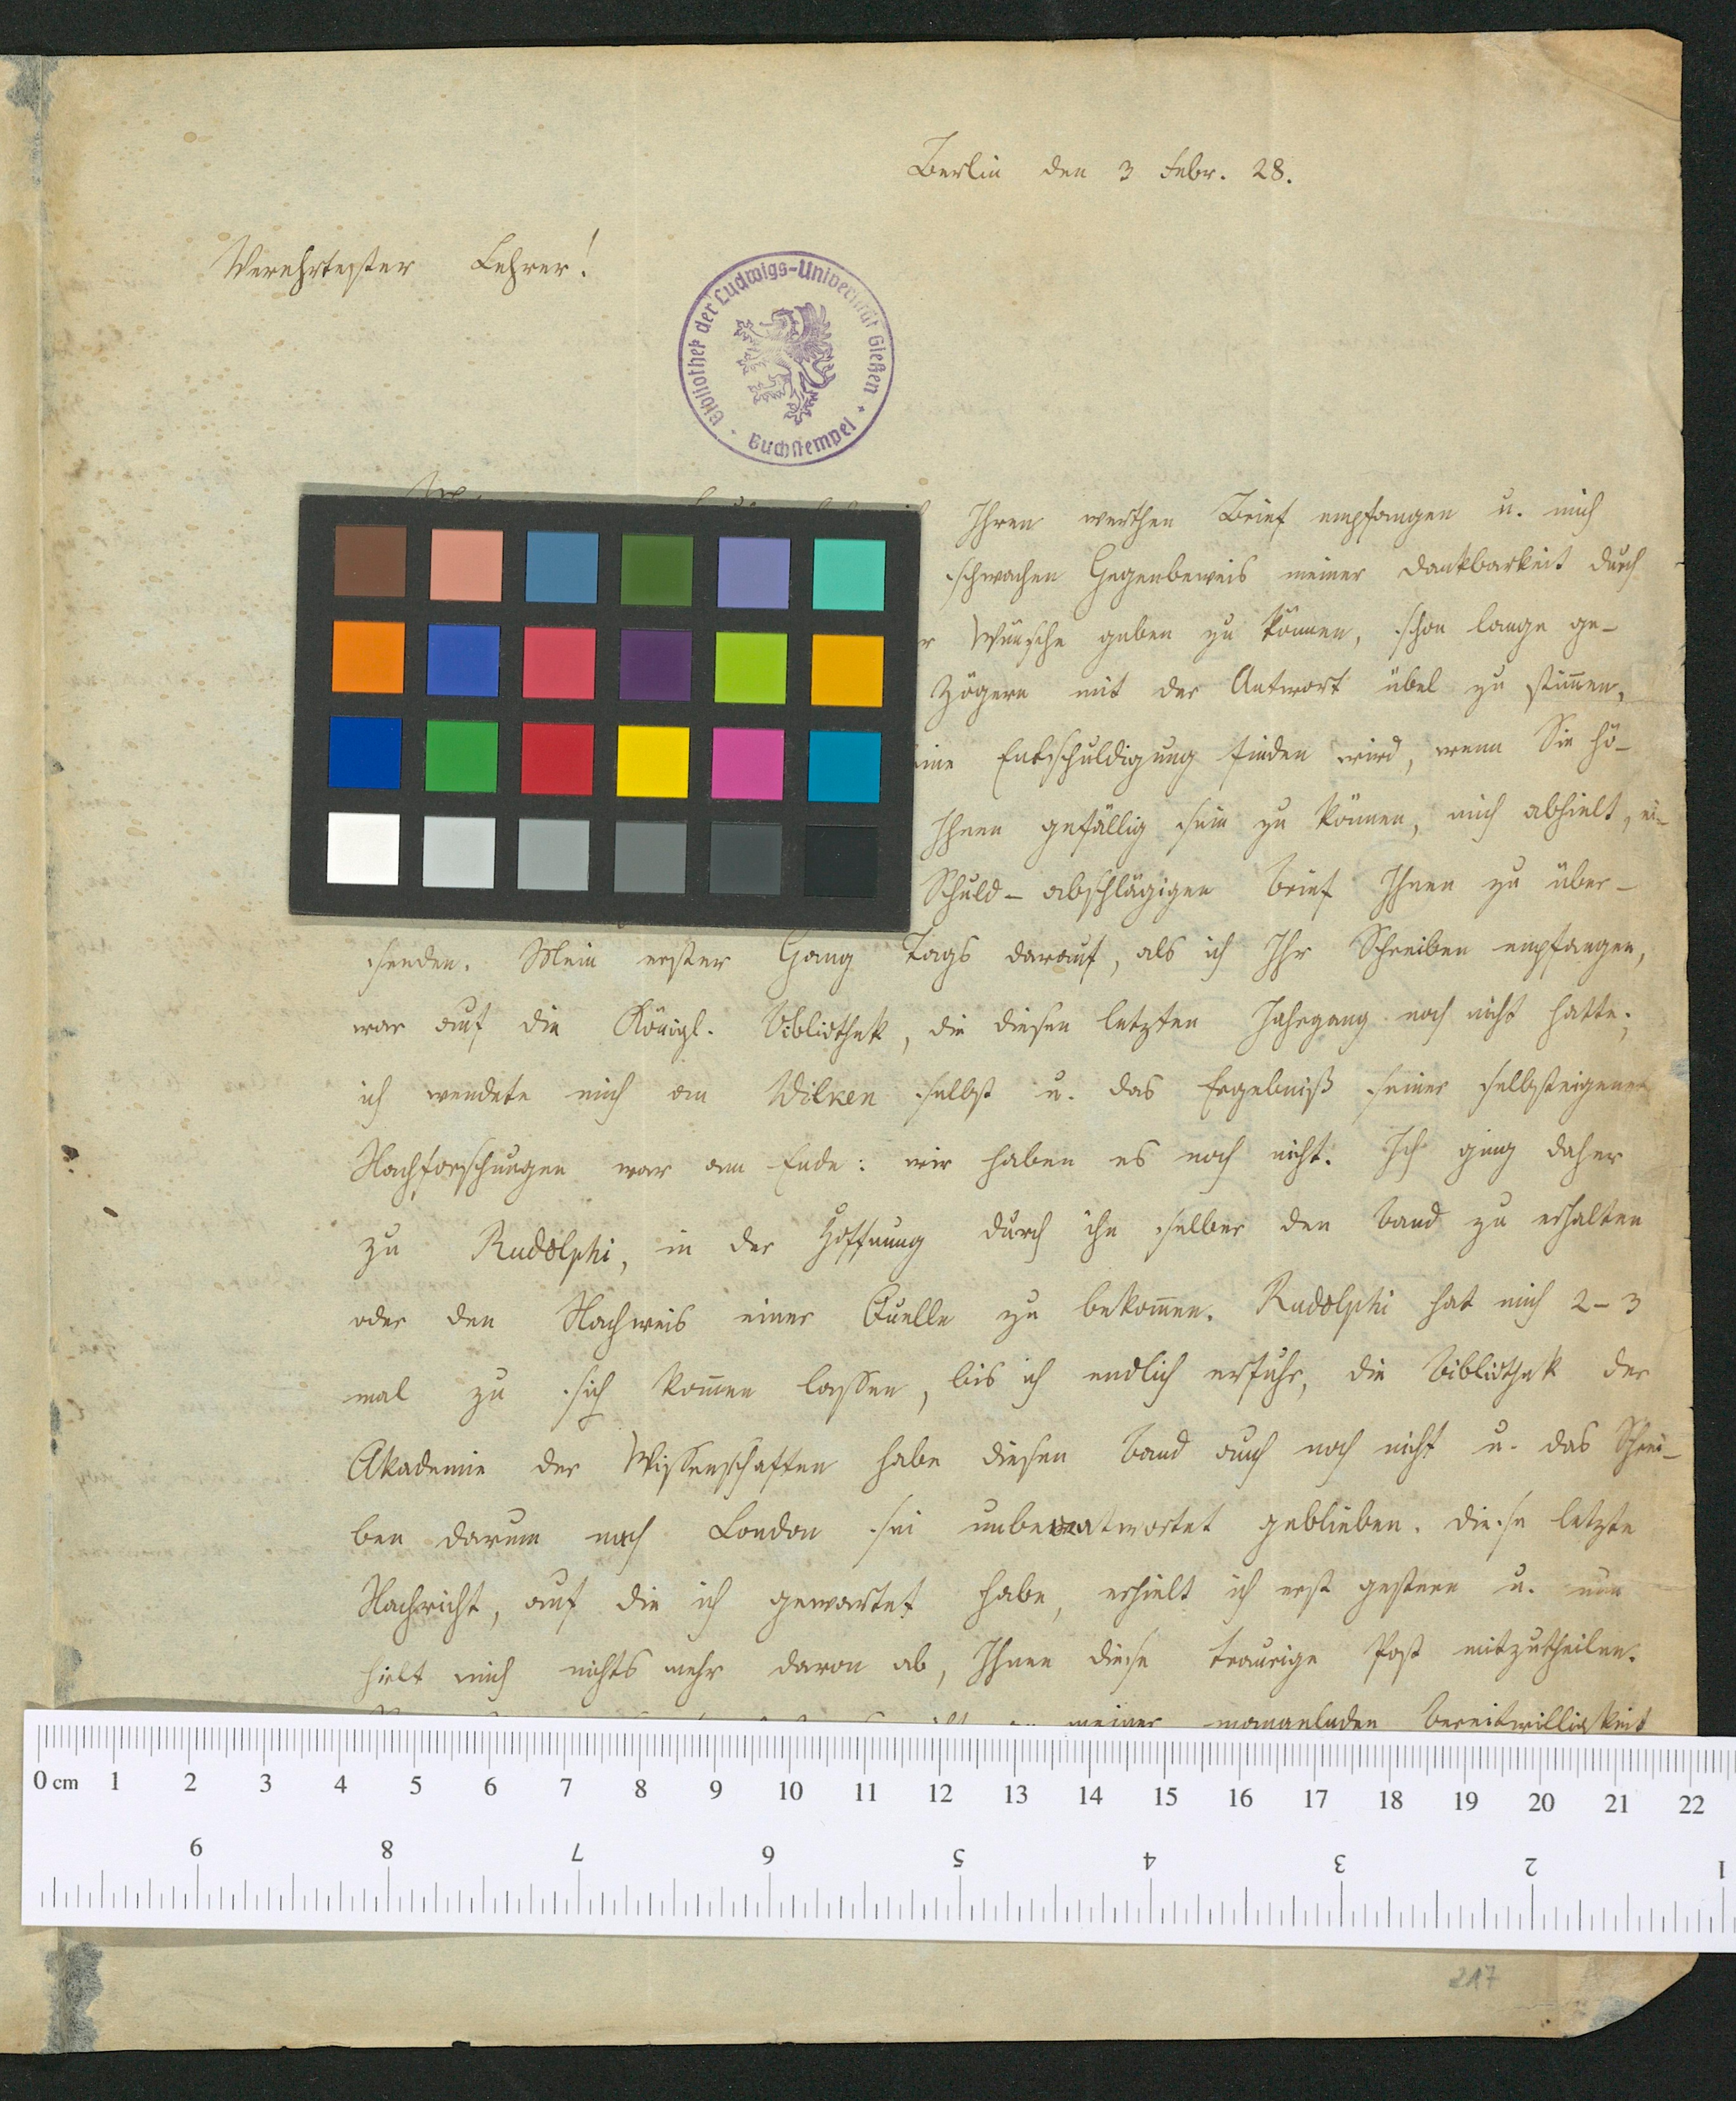 Berlin den 3 Febr. 28.
Verehrtester Lehrer!
Bibliothek der Ludwigs-Universität Gießen
Buchstempel
Ihren werthen Brief empfangen u. mich
schwachen Gegenbeweis meiner Dankbarkeit durch
Wünsche geben zu können, schon lange ge-
Zögern mit der Antwort übel zu stim̄en,
eine Entschuldigung finden wird, wenn Sie hö-
Ihnen gefällig sein zu können, mich abhielt, ei-
Schuld- abschlägigen Brief Ihnen zu über-
senden. Mein erster Gang Tags darauf, als ich Ihr Schreiben empfangen,
war auf die Königl. Bibliothek, die diesen letzten Jahrgang noch nicht hatte;
ich wendete mich an Wilken selbst u. das Ergebniß seiner selbsteigenen
Nachforschungen war am Ende: wir haben es noch nicht. Ich ging daher
zu Rudolphi, in der Hoffnung durch ihn selber den Band zu erhalten
oder den Nachweis einer Quelle zu bekom̄en. Rudolphi hat mich 2-3
mal zu sich kom̄en lassen, bis ich endlich erfuhr, die Bibliothek der
Akademie der Wissenschaften habe diesen Band auch noch nicht u. das Schrei-
ben darum nach London sei unbeantwortet geblieben. Diese letzte
Nachricht, auf die ich gewartet habe, erhielt ich erst gestern u. nun
hielt mich nichts mehr davon ab, Ihnen diese traurige Post mitzutheilen.
meiner mangelnden Bereitwilligkeit
0 cm 1 2 3 4 5 6 7 8 9 10 11 12 13 14 15 16 17 18 19 20 21 22
9 8 7 6 5 4 3 2 1
217